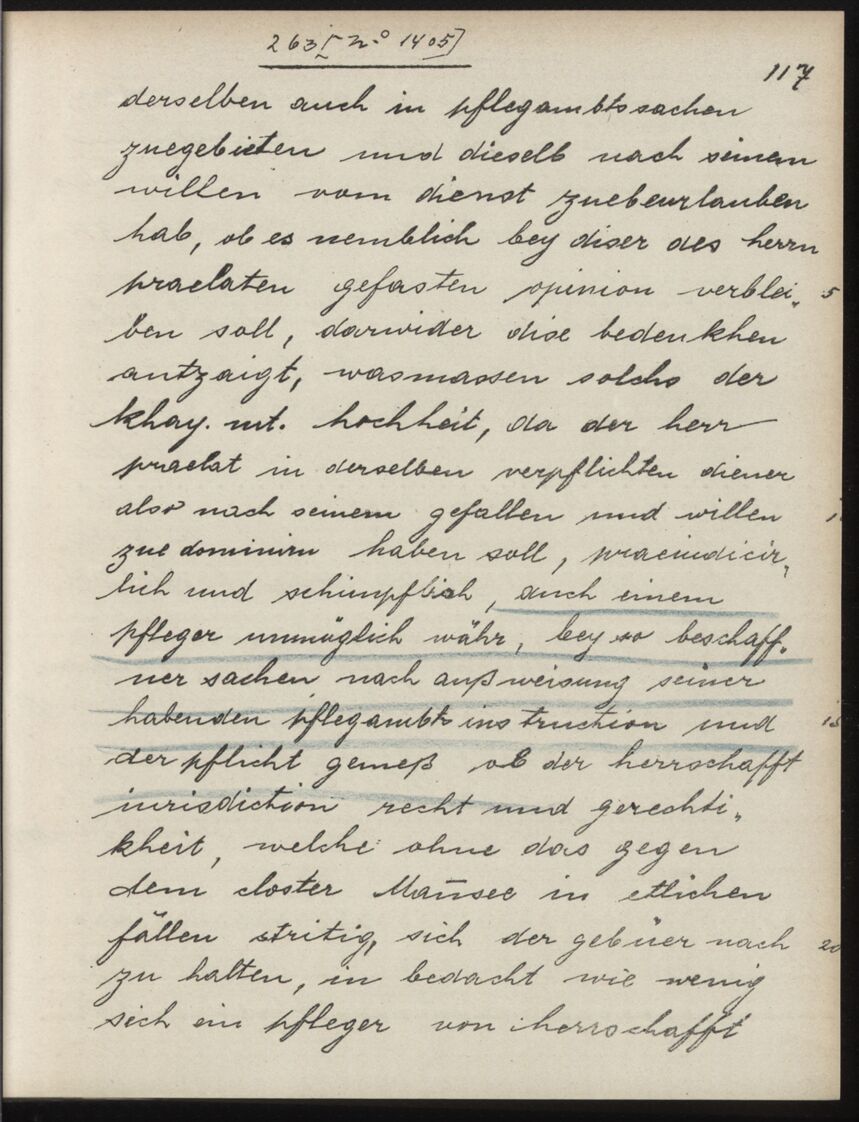 263 [N.o 1405]
117
derselben auch in pflegambtssachen
zuegebieten und dieselb nach seinem
willen vom dienst zuebeurlauben
hab, ob es nemblich bey diser des herrn
praelaten gefasten opinion verblei„ 5
ben soll, darwider dise bedenkhen
antzaigt, wasmassen solchs der
khay. mt. hochheit, da der herr
praelat in derselben verpflichten diener
also nach seinem gefallen und willen
zue dominirn haben soll, praeiudicir„
lich und schimpflich, auch einem
pfleger unmüglich währ, bey so beschaff„
ner sachen nach außweisung seiner
habenden pflegambts instruction und 15
der pflicht gemeß ob der herrschafft
iurisdiction recht und gerechti„
kheit, welche ohne das gegen
dem closter Mansee in etlichen
fällen stritig, sich der gebüer nach 20
zu halten, in bedacht wie wenig
sich ein pfleger von herrschafft